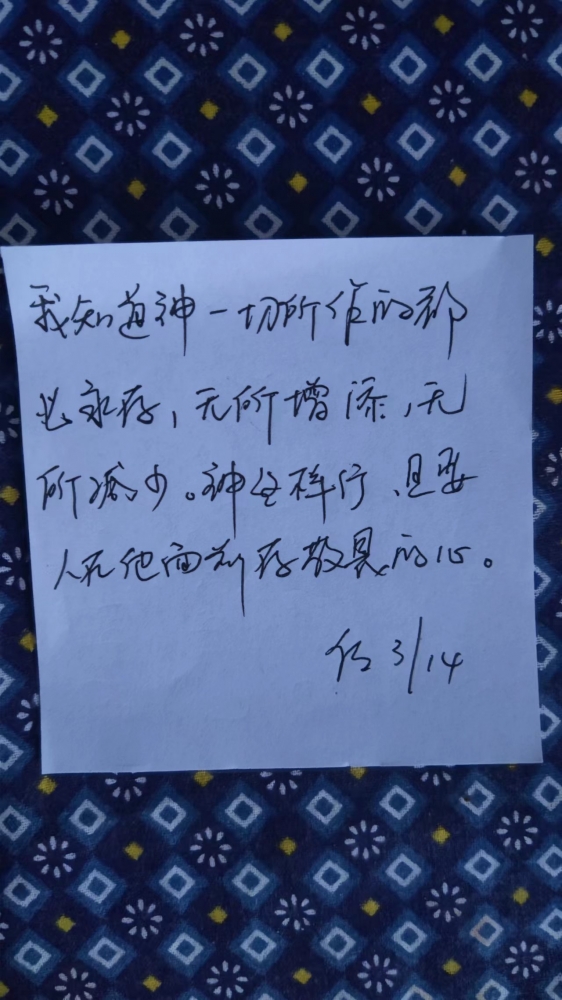 我知道神一切所作的都
必永存，无所增添，无
所减少。神这样行，是要
人在他面前存敬畏的心。
传 3/14